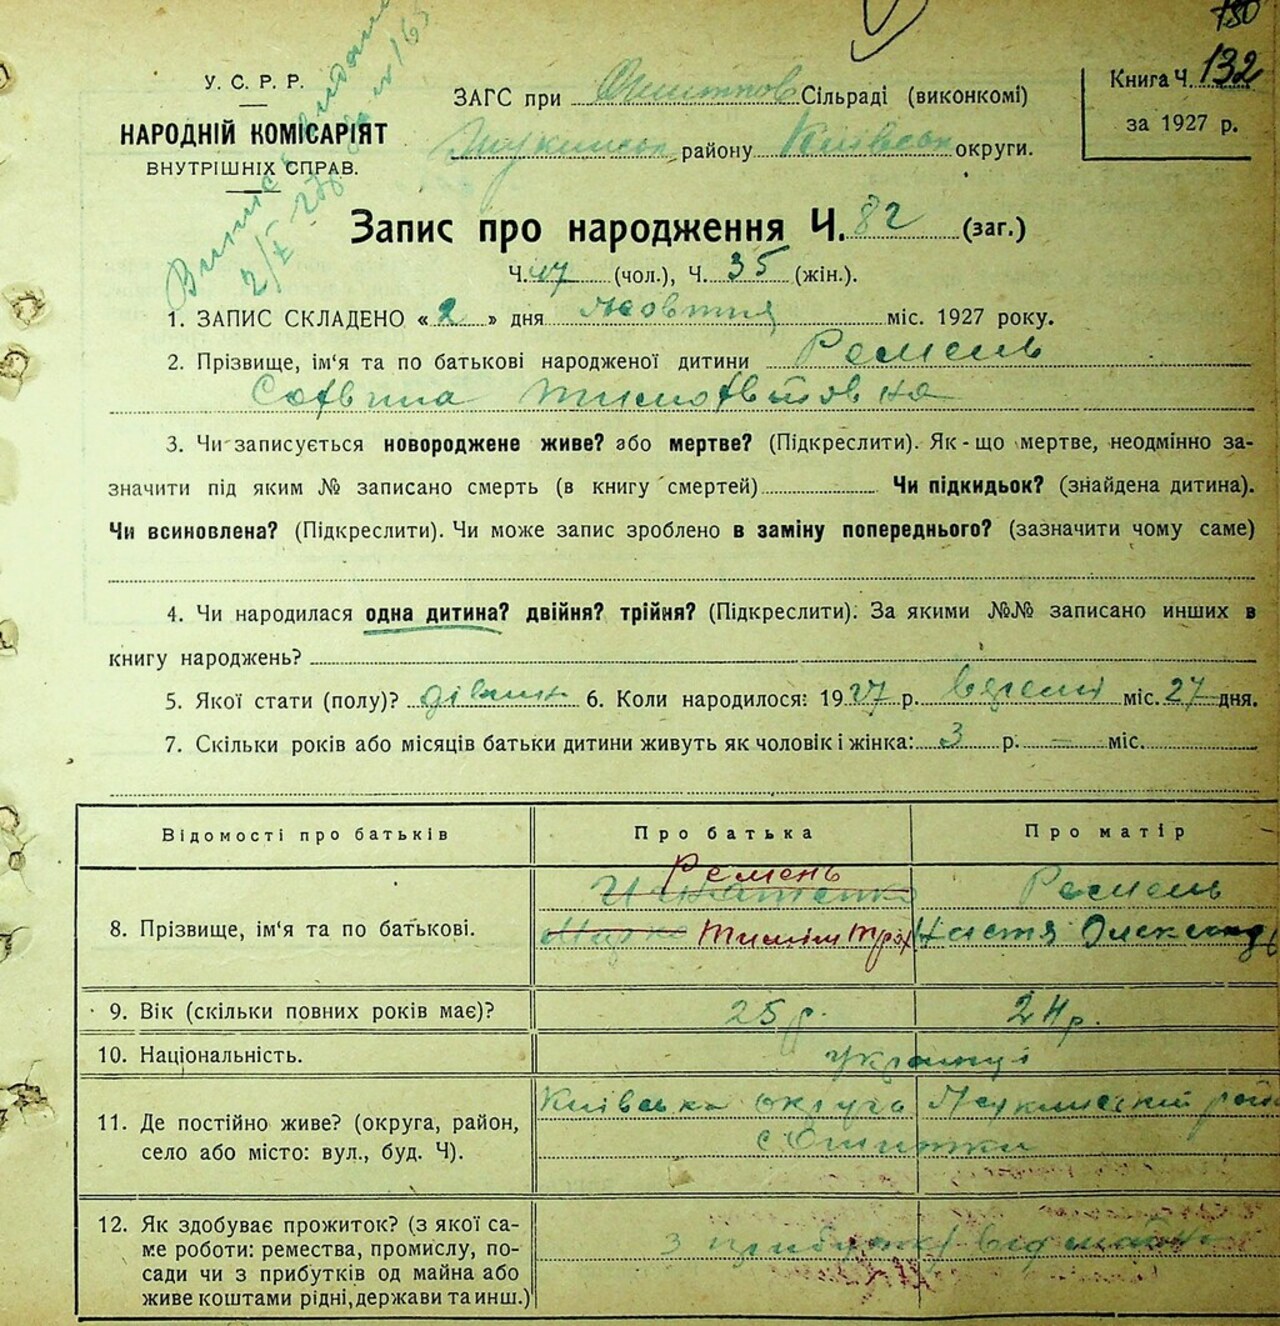 130
У. С. Р. Р.
НАРОДНІЙ КОМІСАРІЯТ
ВНУТРІШНІХ СПРАВ.
ЗАГС при Сільраді (виконкомі)
району Київськ округи.
Книга Ч. 132
за 1927 р.
Запис про народження Ч. 82 (заг.)
Ч. 47 (чол.), Ч. 35 (жін.).
1. ЗАПИС СКЛАДЕНО « 2 » дня Жовтня міс. 1927 року.
2. Прізвище, ім'я та по батькові народженої дитини Ремень
3. Чи записується новороджене живе? або мертве? (Підкреслити). Як-що мертве, неодмінно за-
значити під яким № записано смерть (в книгу смертей) Чи підкидьок? (знайдена дитина).
Чи всиновлена? (Підкреслити). Чи може запис зроблено в заміну попереднього? (зазначити чому саме)
4. Чи народилася одна дитина? двійня? трійня? (Підкреслити). За якими №№ записано инших в
книгу народжень?
5. Якої стати (полу)? 6. Коли народилося: 1927 р. вересня міс. 27 дня.
7. Скільки років або місяців батьки дитини живуть як чоловік і жінка: 3 р. — міс.
Відомості про батьків Про батька Про матір
8. Прізвище, ім'я та по батькові.
Ремень
Ремень
Настя
9. Вік (скільки повних років має)? 25 р. 24 р.
10. Національність. Українці
11. Де постійно живе? (округа, район,
село або місто: вул., буд. Ч).
Київська округа
12. Як здобуває прожиток? (з якої са-
ме роботи: ремества, промислу, по-
сади чи з прибутків од майна або
живе коштами рідні, держави та инш.)